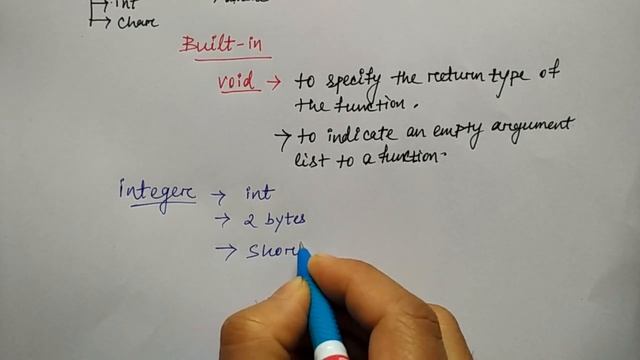 → int
→ char
Built-in
void → to specify the return type of
the function.
→ to indicate an empty argument
list to a function.
integer → int
→ 2 bytes
→ Shor